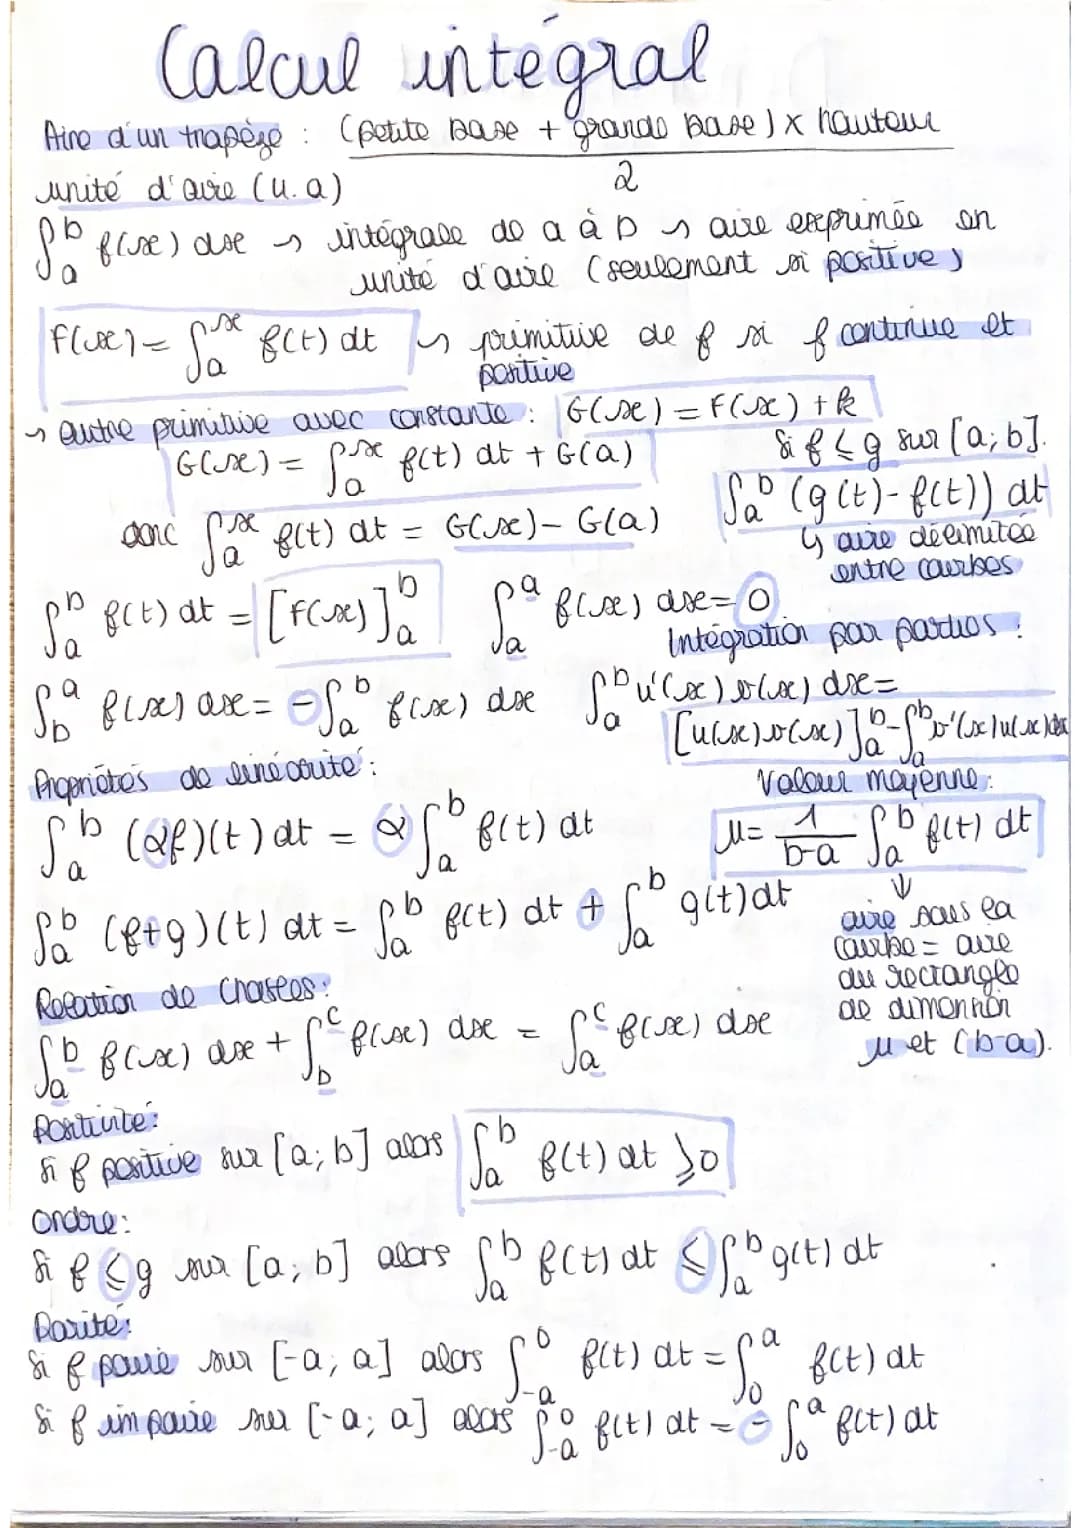 Calcul intégral
Aire d'un trapèze : (petite base + grande base) x hauteur
2
unité d'aire (u.a)
∫_a^b f(x) dx ↪ intégrale de a à b ↪ aire exprimée en
unité d'aire (seulement si positive)
F(x) = ∫_a^x f(t) dt ↪ primitive de f si f continue et
positive
↪ autre primitive avec constante : G(x) = F(x) + k
G(x) = ∫_a^x f(t) dt + G(a)
donc ∫_a^x f(t) dt = G(x) - G(a)
Si f ≤ g sur [a; b].
∫_a^b (g(t) - f(t)) dt
↪ aire délimitée
entre courbes
∫_a^b f(t) dt = [F(x)]_a^b
∫_a^a f(x) dx = 0
∫_b^a f(x) dx = -∫_a^b f(x) dx
Intégration par parties :
∫_a^b u'(x) v(x) dx =
[u(x) v(x)]_a^b - ∫_a^b v'(x) u(x) dx
Propriétés de linéarité :
∫_a^b (αf)(t) dt = α ∫_a^b f(t) dt
∫_a^b (f+g)(t) dt = ∫_a^b f(t) dt + ∫_a^b g(t) dt
Valeur moyenne :
μ = 1/(b-a) ∫_a^b f(t) dt
↓
aire sous la
courbe = aire
du rectangle
de dimension
μ et (b-a).
Relation de Chasles :
∫_a^b f(x) dx + ∫_b^c f(x) dx = ∫_a^c f(x) dx
Positivité :
Si f positive sur [a; b] alors ∫_a^b f(t) dt ≥ 0
Ordre :
Si f ≤ g sur [a; b] alors ∫_a^b f(t) dt ≤ ∫_a^b g(t) dt
Parité :
Si f paire sur [-a; a] alors ∫_-a^0 f(t) dt = ∫_0^a f(t) dt
Si f impaire sur [-a; a] alors ∫_-a^0 f(t) dt = - ∫_0^a f(t) dt